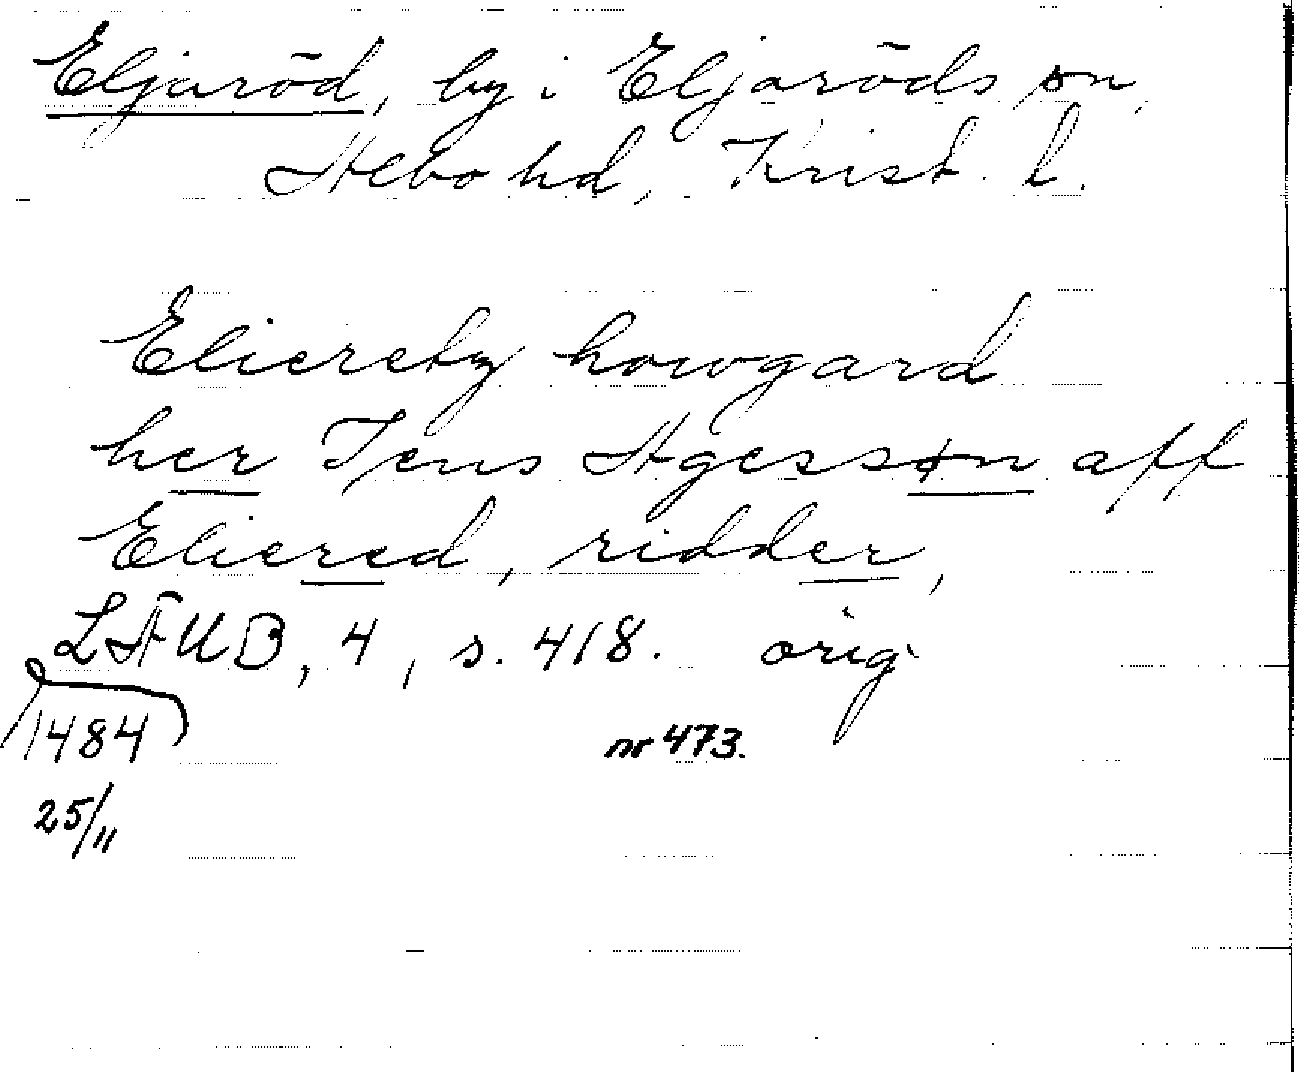 Eljaröd, by i Eljaröds sn,
Albo hd, Krist. l.
Elieretz howgard
her Jens Agessøn aff
Eliered, ridder,
LÄUB, 4, s. 418. orig
1484
nr 473.
25/11